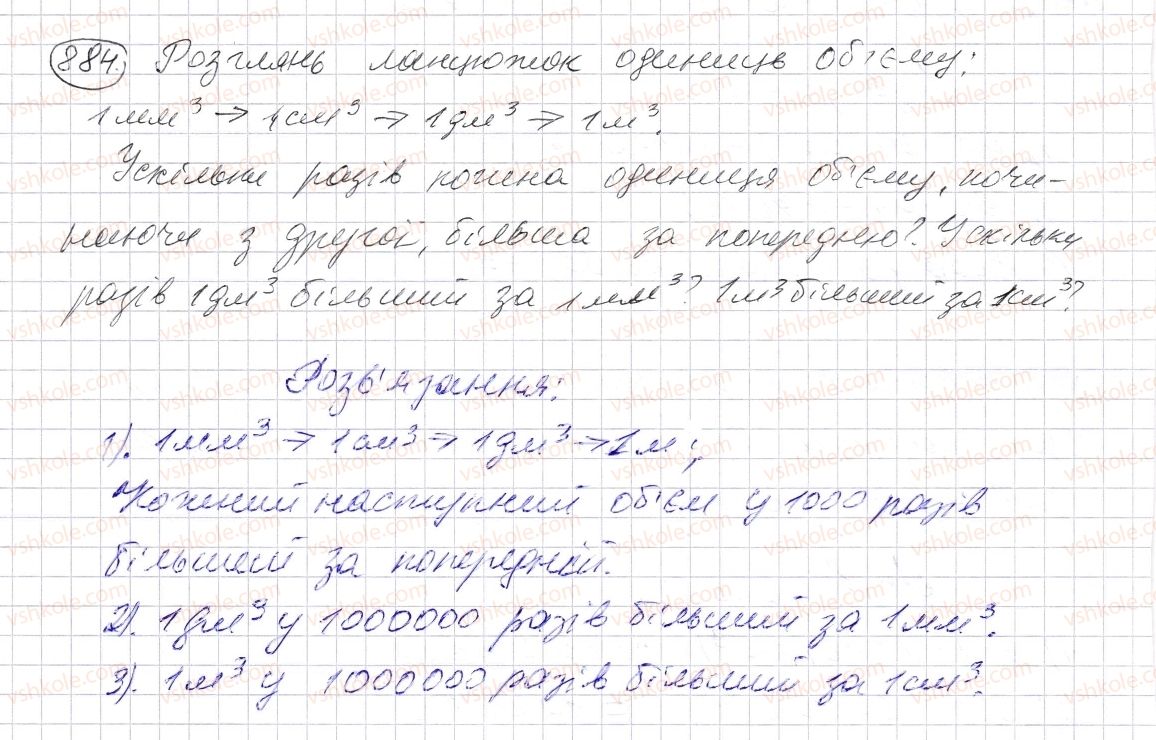 884. Розглянь ланцюжок одиниць об'єму:
1 мм³ → 1 см³ → 1 дм³ → 1 м³.
Ускільки разів кожна одиниця об'єму, почи-
наючи з другої, більша за попередню? Ускільки
разів 1 дм³ більший за 1 мм³? 1 м³ більший за 1 см³?
Розв'язання:
1). 1 мм³ → 1 см³ → 1 дм³ → 1 м;
Кожний наступний об'єм у 1000 разів
більший за попередній.
2). 1 дм³ у 1000000 разів більший за 1 мм³.
3). 1 м³ у 1000000 разів більший за 1 см³.